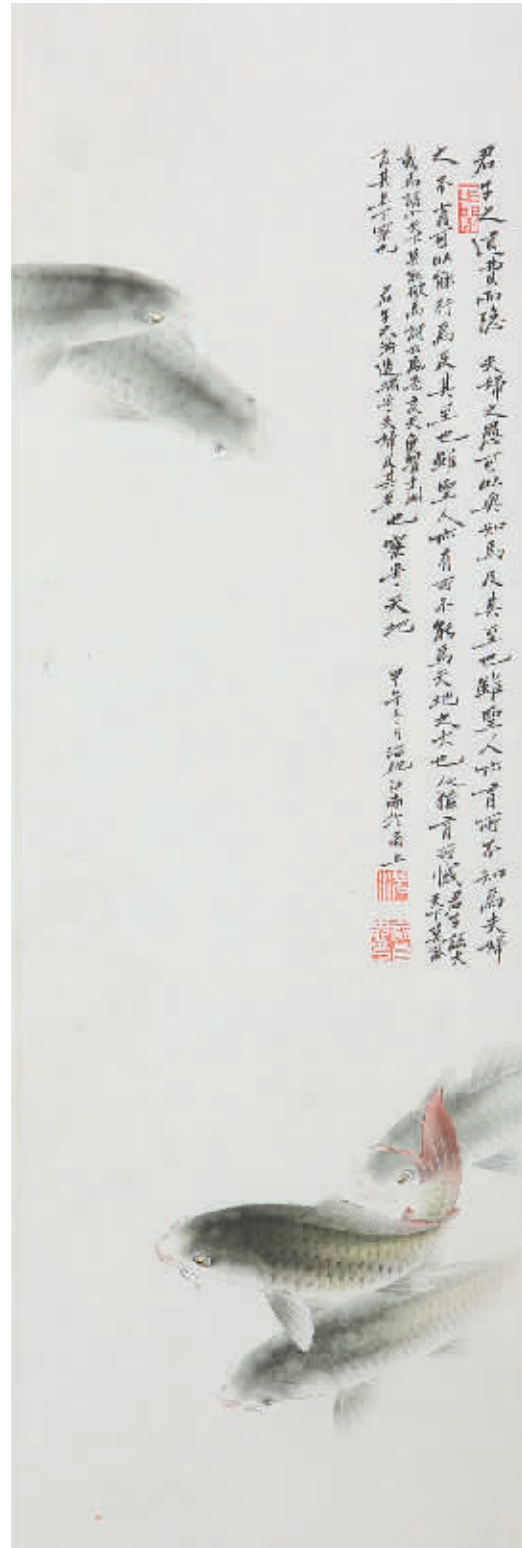 君子之道費而隐 夫婦之愚可以與知焉及其至也雖聖人亦有所不知焉夫婦
之不肖可以能行焉及其至也雖聖人亦有所不能焉天地之大也人猶有所憾君子語大天下莫能
載焉語小天下莫能破焉詩云鳶飛戾天魚躍于淵
言其上下察也 君子之道造端乎夫婦及其至也察乎天地 甲午月於甬上